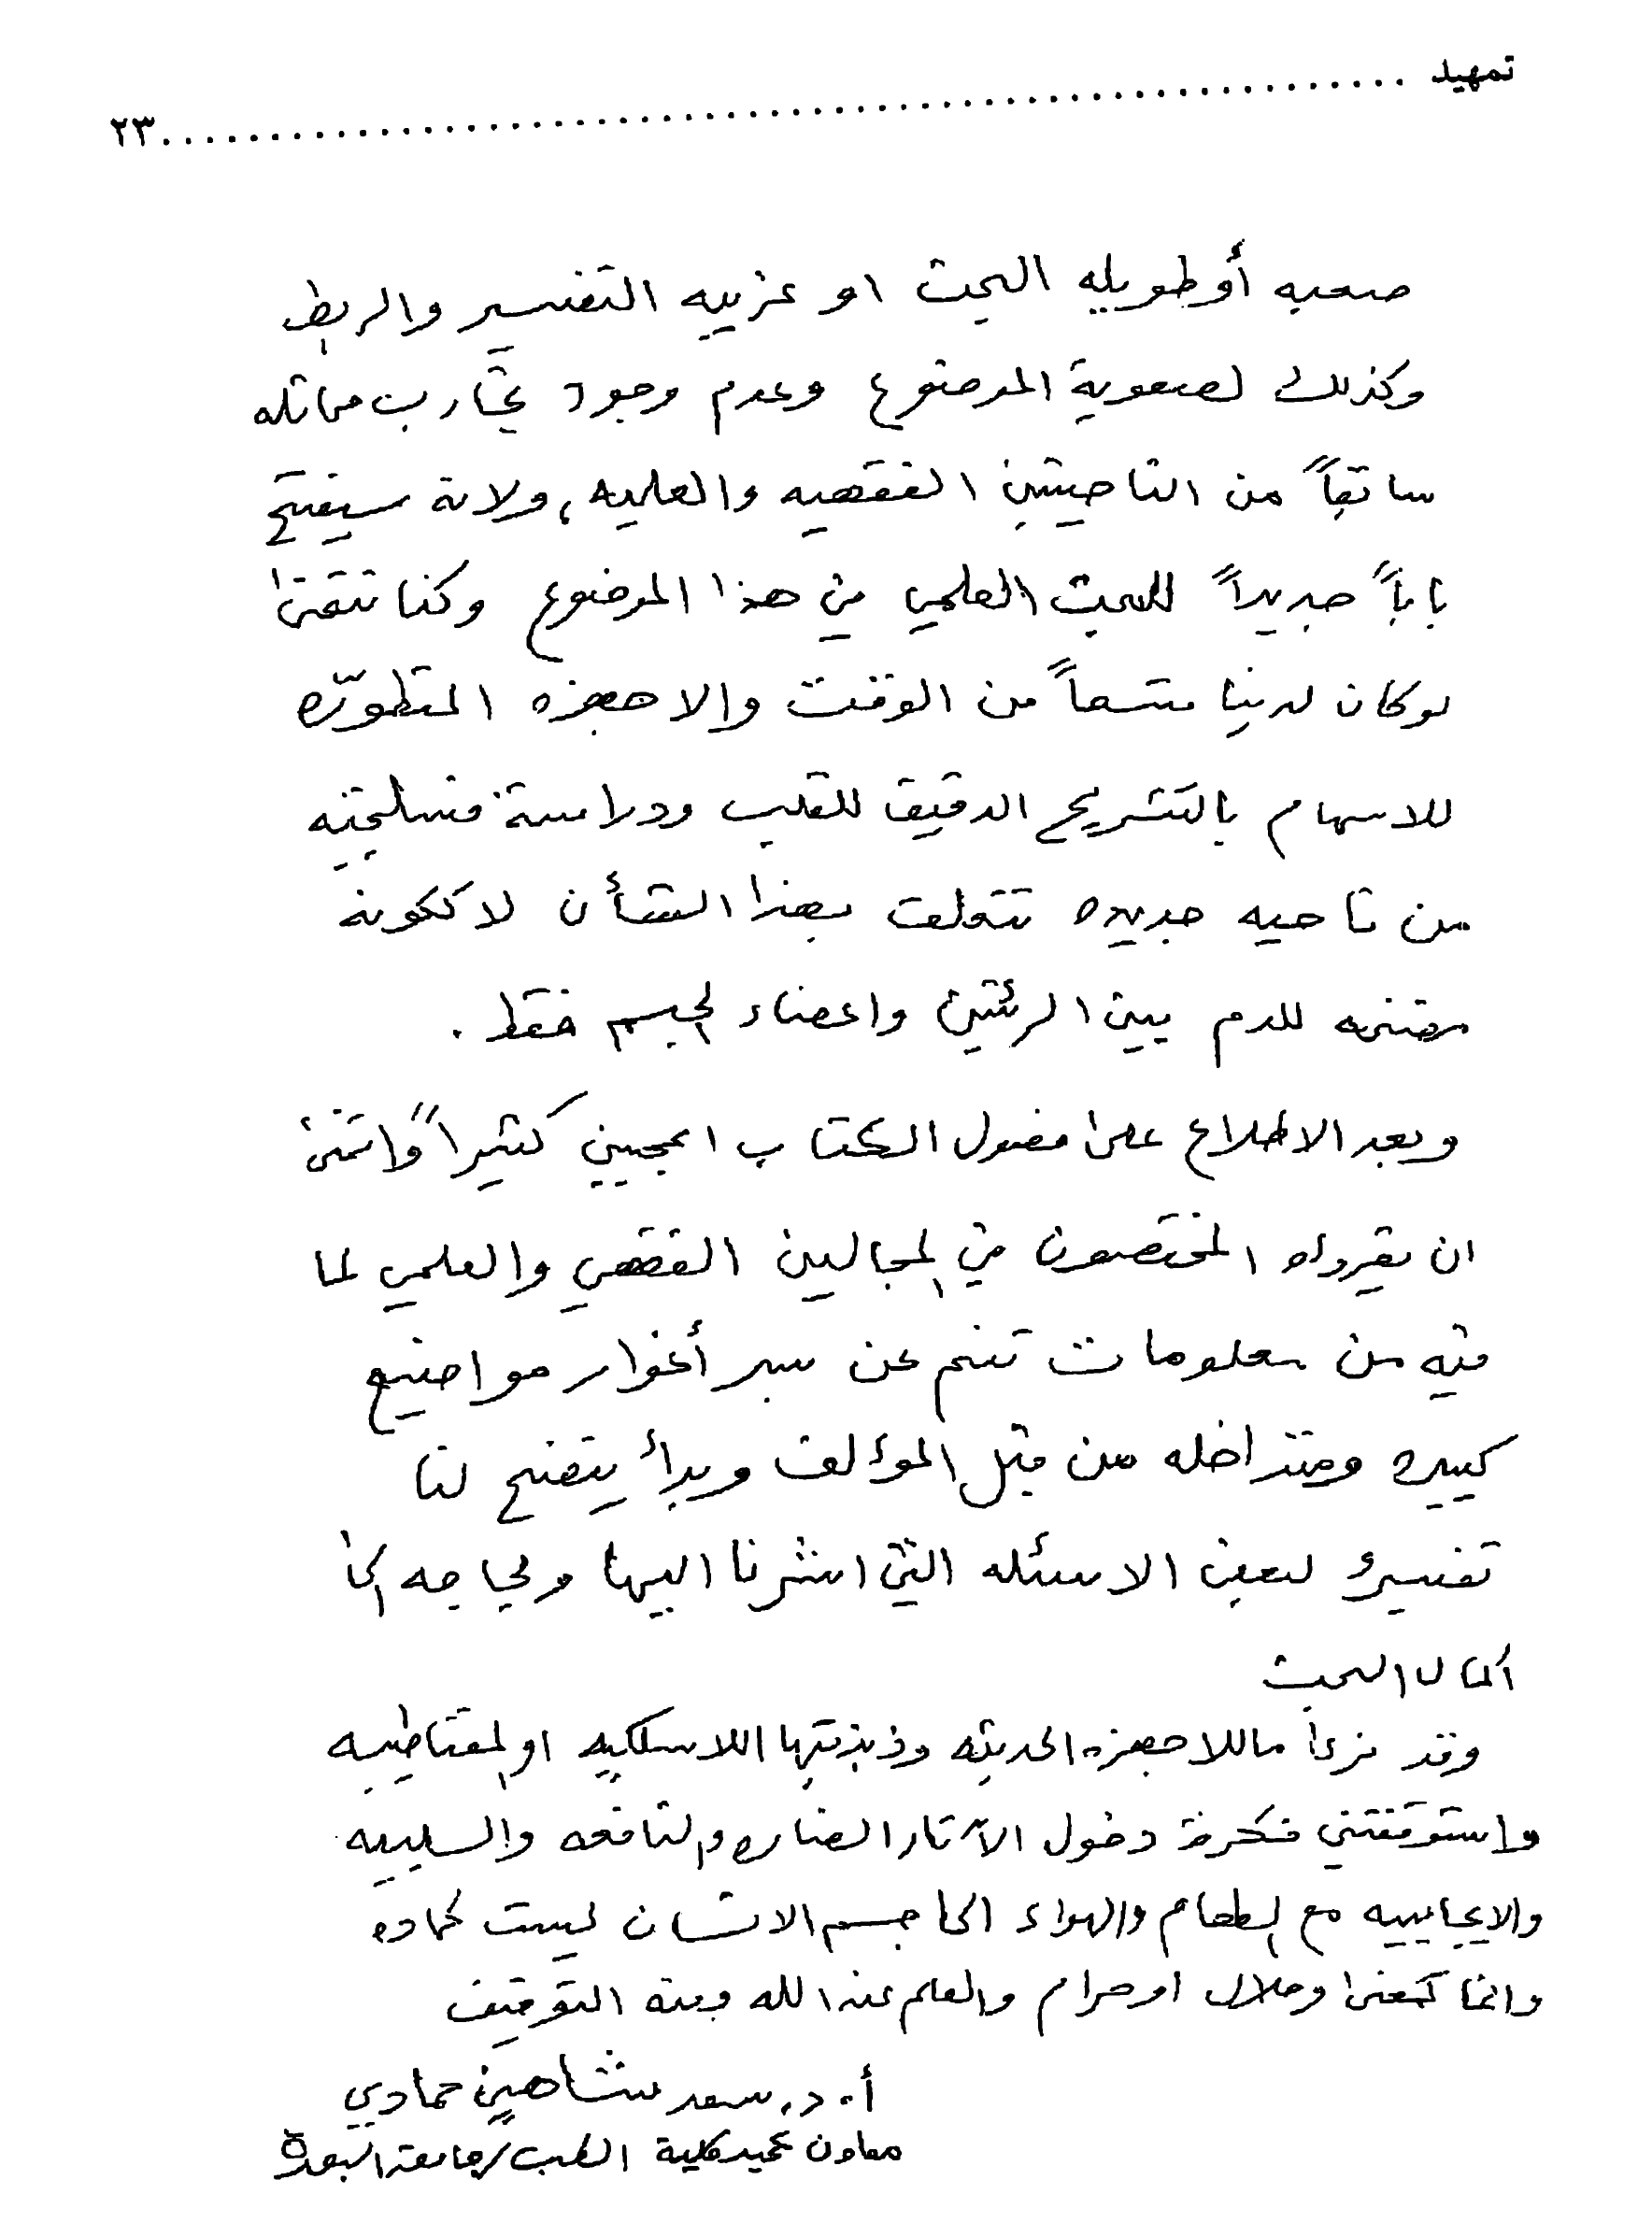 تمهيد ........................................ ٢٣
صعبه أو طويله البحث او غريبه التفسير والربط
وكذلك لصعوبة الموضوع وعدم وجود تجارب مماثله
سابقاً من الناحيتين الفقهيه والعلميه، ولانه سيفتح
باباً جديداً للبحث العلمي في هذا الموضوع وكنا نتمنى
لو كان لدينا متسعاً من الوقت والاجهزه المتطوّره
للاسهام بالتشريح الدقيق للقلب ودراسة فسلجته
من ناحيه جديده تتعلق بهذا الشأن لا ككونه
مضخه للدم بين الرئتين واعضاء الجسم فقط .
وبعد الاطلاع على فصول الكتاب اعجبني كثيراً واتمنى
ان يقرواه المختصون في المجالين الفقهي والعلمي لما
فيه من معلومات تنم عن سبر أغوار مواضيع
كبيره ومتداخله من قبل المؤلف وبدأ يتضح لنا
تفسير لبعض الاسئله التي اشرنا اليها وبحاجه الى
اكمال البحث
وقد نرى ما للاجهزه الحديثه وذبذبتها اللاسلكيه او المغناطيسيه
واستوقفتني فكرة دخول الآثار الضاره والنافعه والسلبيه
والايجابيه مع الطعام والهواء الى جسم الانسان ليست كماده
وانما كمعنى وحلال او حرام والعلم عند الله ومنه التوفيق
أ. د. سعد شاهين حمادي
معاون عميد كلية الطب / جامعة البصرة